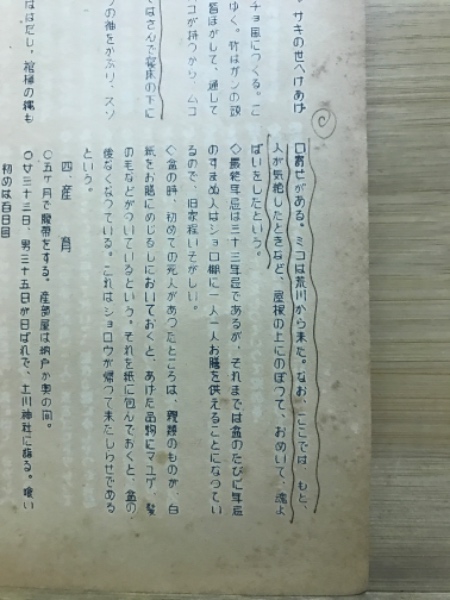 サキの世へけあげ
チョ風につくる。こ
ゆく。竹はガンの頭
皆ほがして、通して
コが持つから、ムコ
てはさんで寝床の下に
の袖をかぶり、スソ
ははだし、棺桶の縄も
C
口寄せがある。ミコは荒川から来た。なお、ここでは、もと、
人が気絶したときなど、屋根の上にのぼつて、おめいて、魂よ
ばいをしたという。
◇最終年忌は三十三年忌であるが、それまでは盆のたびに年忌
のすまぬ人はショロ棚に一人一人お膳を供えることになつてい
るので、旧家程いそがしい。
◇盆の時、初めての死人があつたところは、親類のものが、白
紙をお膳にめじるしにおいておくと、あけた品物にマユゲ、髪
の毛などがついているという。それを紙に包んでおくと、盆の
後なくなつている。これはショロウが帰つて来たしらせである
という。
四、産育
○五ケ月で腹帯をする。産部屋は納戸か奥の间。
○廿三十三日、男三十五日が日ばれで、土川神社に詣る。喰い
初めは百日目